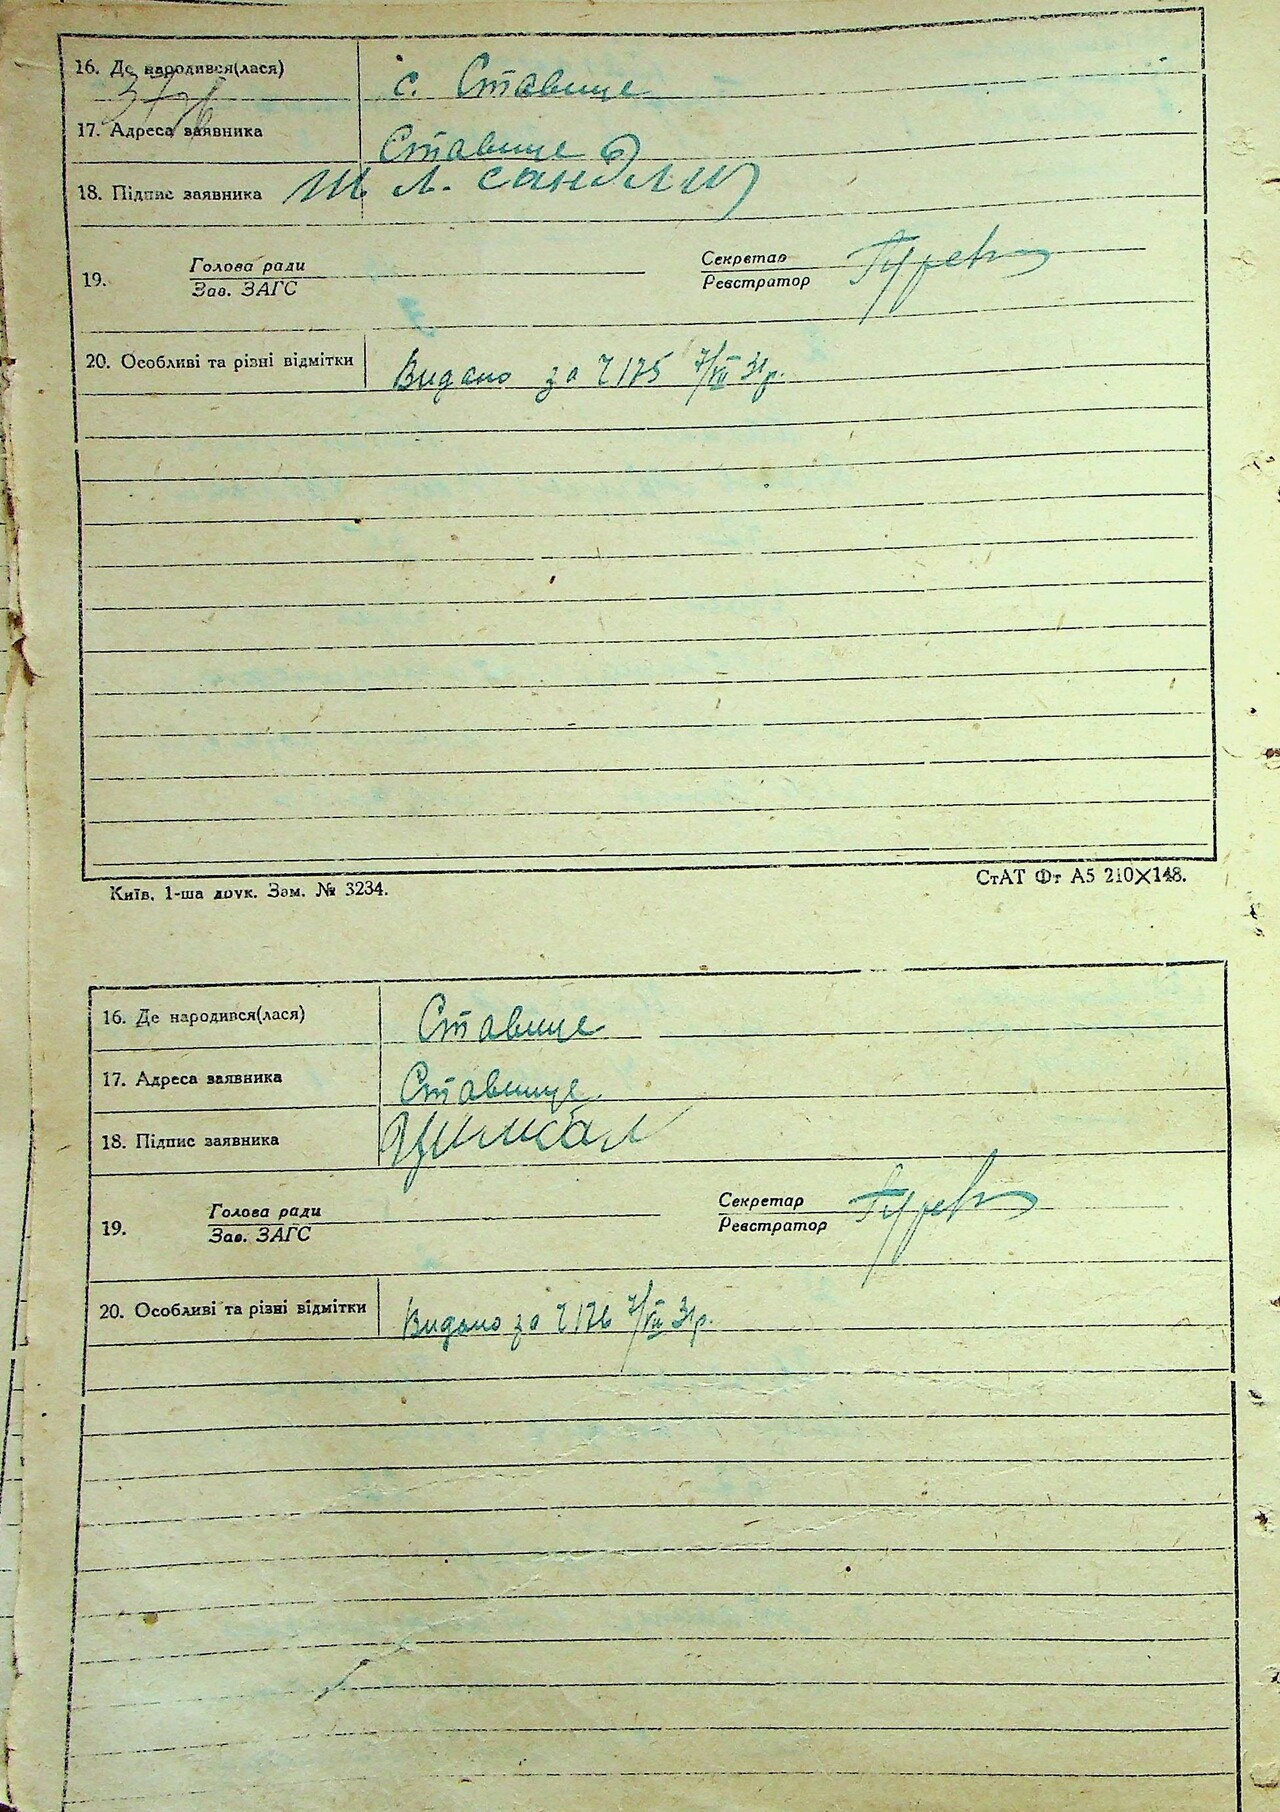 16. Де народився(лася) с. Ставище
17. Адреса заявника Ставище
18. Підпис заявника
19. Голова ради Секретар
Зав. ЗАГС Реєстратор
20. Особливі та різні відмітки Видано за Ч 175 7/VII 31р.
Київ. 1-ша друк. Зам. № 3234. СтАТ Фт А5 210×148.
16. Де народився(лася) Ставище
17. Адреса заявника Ставище
18. Підпис заявника
19. Голова ради Секретар
Зав. ЗАГС Реєстратор
20. Особливі та різні відмітки Видано за Ч 176 7/VII 31р.